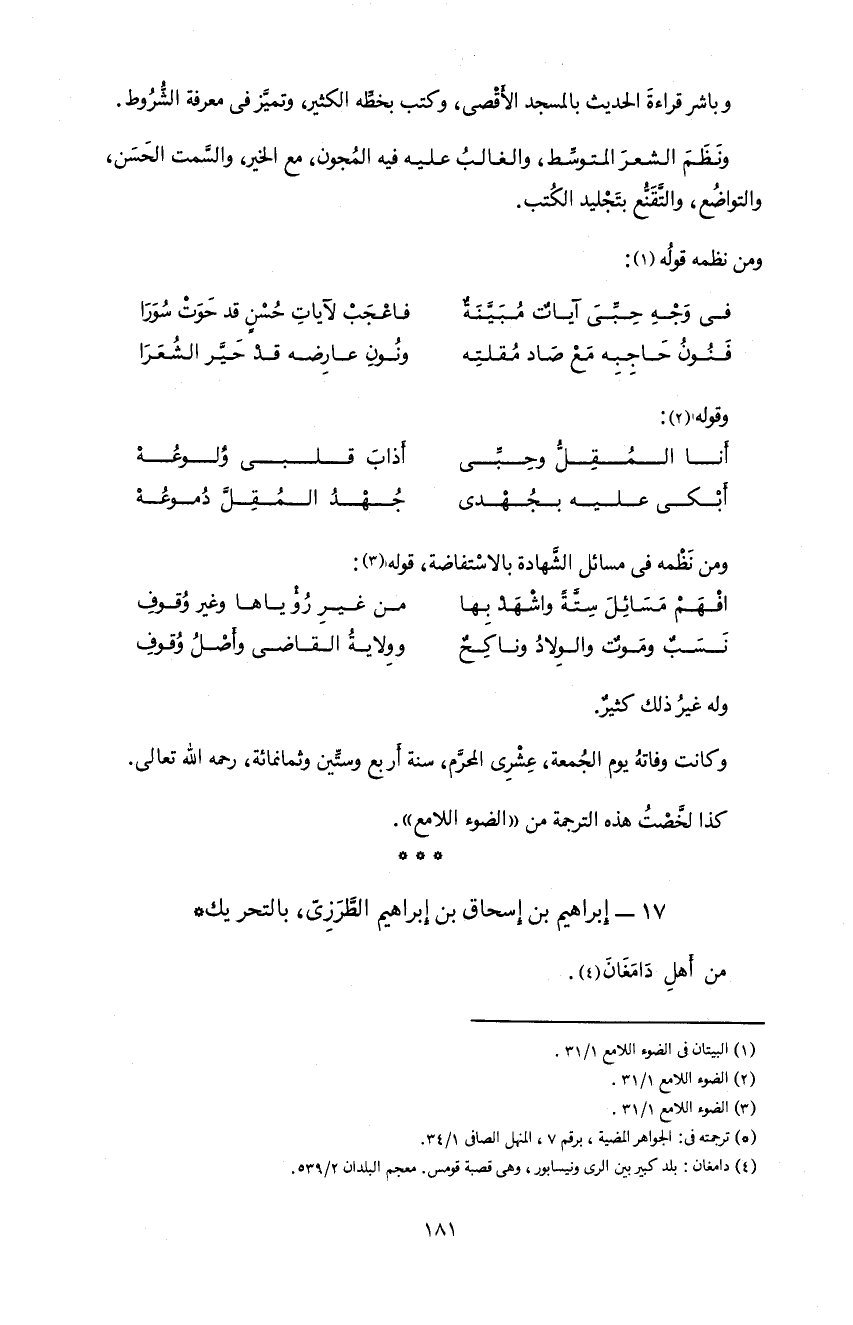 وباشر قراءةَ الحديث بالمسجد الأَقْصى، وكتب بخطَّه الكثير، وتميَّز فى معرفة الشُّرُوط.
ونَظَمَ الشعرَ المتوسِّط، والغالبُ عليه فيه المُجون، مع الخير، والسَّمت الحَسَن،
والتواضُع، والتَّقَنُّع بتَجْليد الكُتب.
ومن نظمه قولُه (١):
فى وَجْهِ حِبِّىَ آياتٌ مُبَيَّنَةٌ فاعْجَبْ لآياتِ حُسْنٍ قد حَوَتْ سُوَرَا
فَنُونُ حَاجِبِه مَعْ صَاد مُقلتِه ونُونِ عارِضه قدْ حَيَّر الشُّعَرَا
وقوله(٢):
أنا المُقِلُّ وحِبِّى أذابَ قلبى وُلوعُهْ
أبْكى عليه بجُهْدى جُهْدُ المُقِلَّ دُموعُهْ
ومن نَظْمه فى مسائل الشَّهادة بالاسْتفاضة، قوله(٣):
افْهَمْ مَسَائِلَ سِتَّةً واشْهَدْ بِها من غيرِ رُؤْياها وغير وُقوفِ
نَسَبٌ ومَوتٌ والوِلادُ وناكِحٌ وولايةُ القاضى وأَصْلُ وُقوفِ
وله غيرُ ذلك كثيرٌ.
وكانت وفاتهُ يوم الجُمعة، عِشْرِى المحرَّم، سنة أربع وستِّين وثمانمائة، رحمه الله تعالى.
كذا لخَّصْتُ هذه الترجمة من «الضوء اللامع».
* * *
١٧ ــ إبراهيم بن إسحاق بن إبراهيم الطَّرَزِىّ، بالتحريك*
من أَهلِ دَامَغَانَ(٤).
(١) البيتان فى الضوء اللامع ٣١/١ .
(٢) الضوء اللامع ٣١/١ .
(٣) الضوء اللامع ٣١/١ .
(*) ترجمته فى: الجواهر المضية ، برقم ٧ ، المنهل الصافى ٣٤/١.
(٤) دامغان : بلد كبير بين الرى ونيسابور ، وهى قصبة قومس. معجم البلدان ٥٣٩/٢.
١٨١